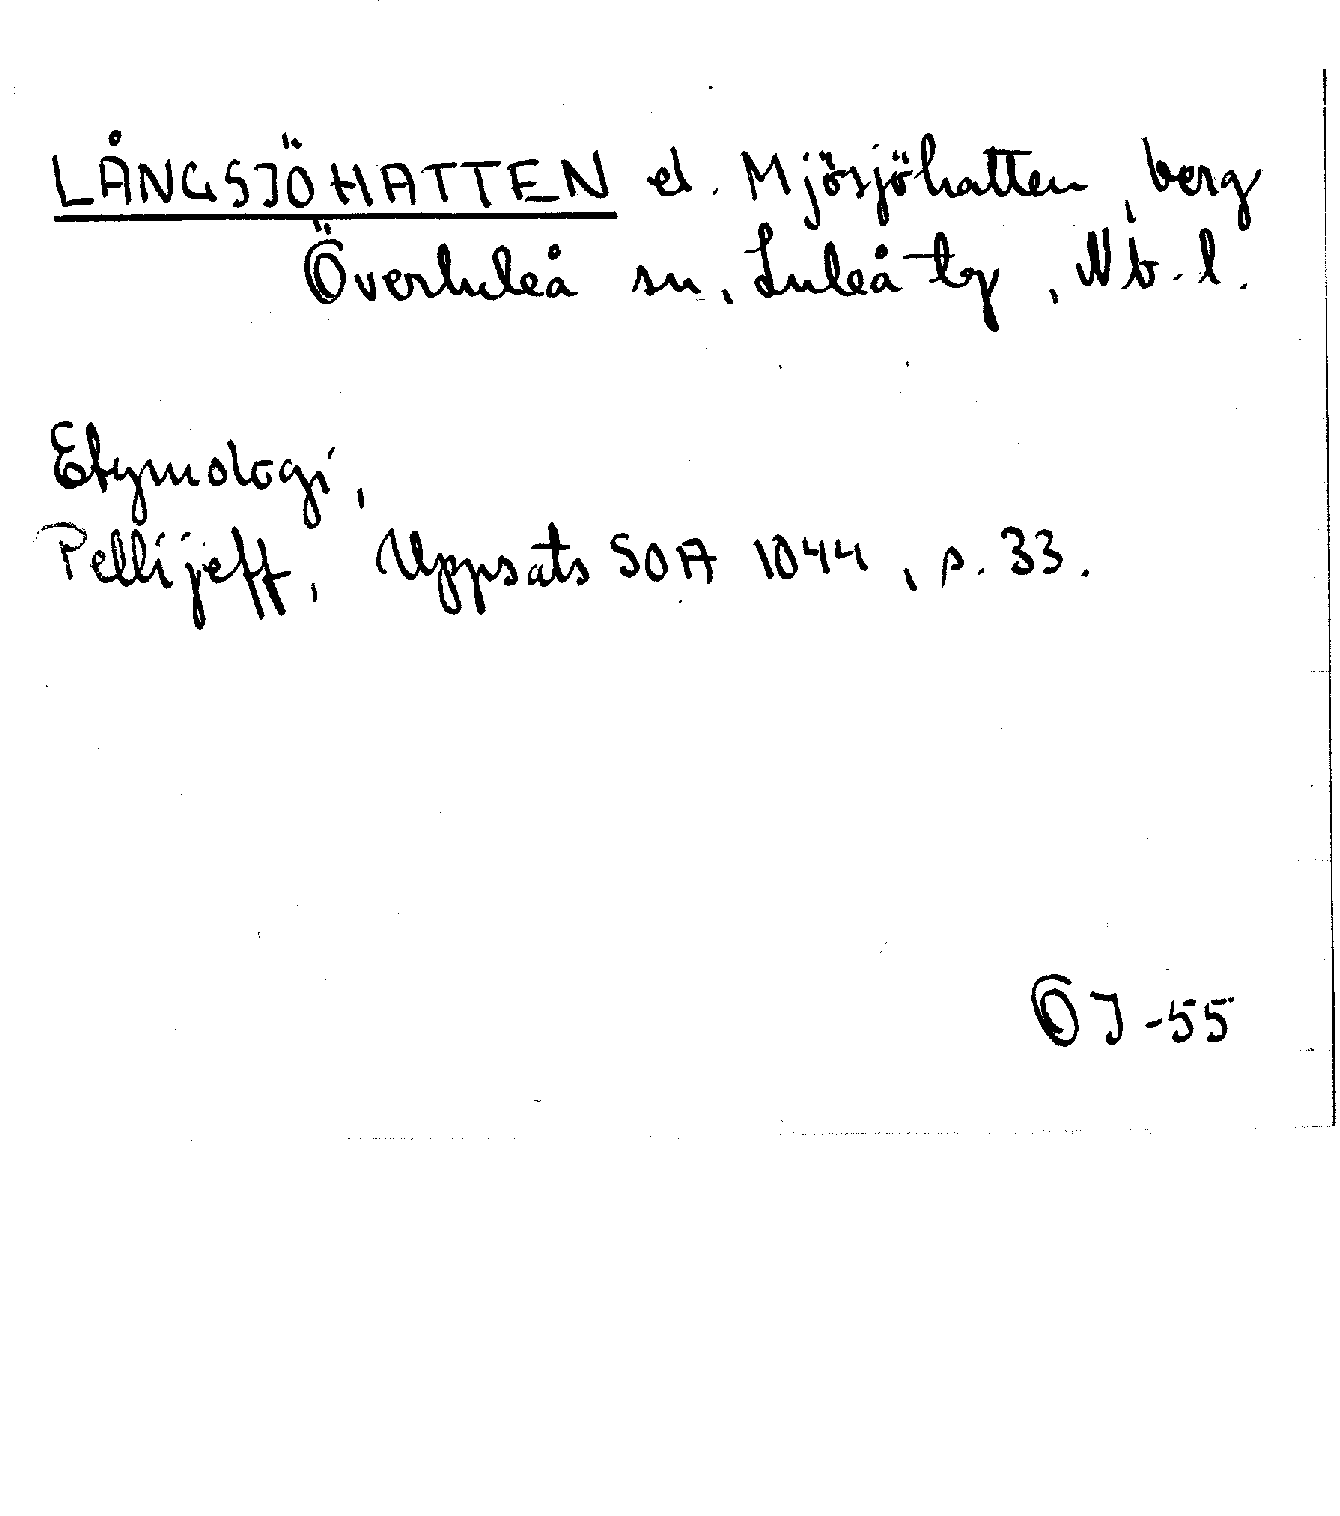 LÅNGSJÖHATTEN el. Mjösjöhatten, berg
Överluleå sn, Luleå tg, Nb. l.
Etymologi,
Pellijeff, Uppsats SOA 1044, s. 33.
ÖJ-55